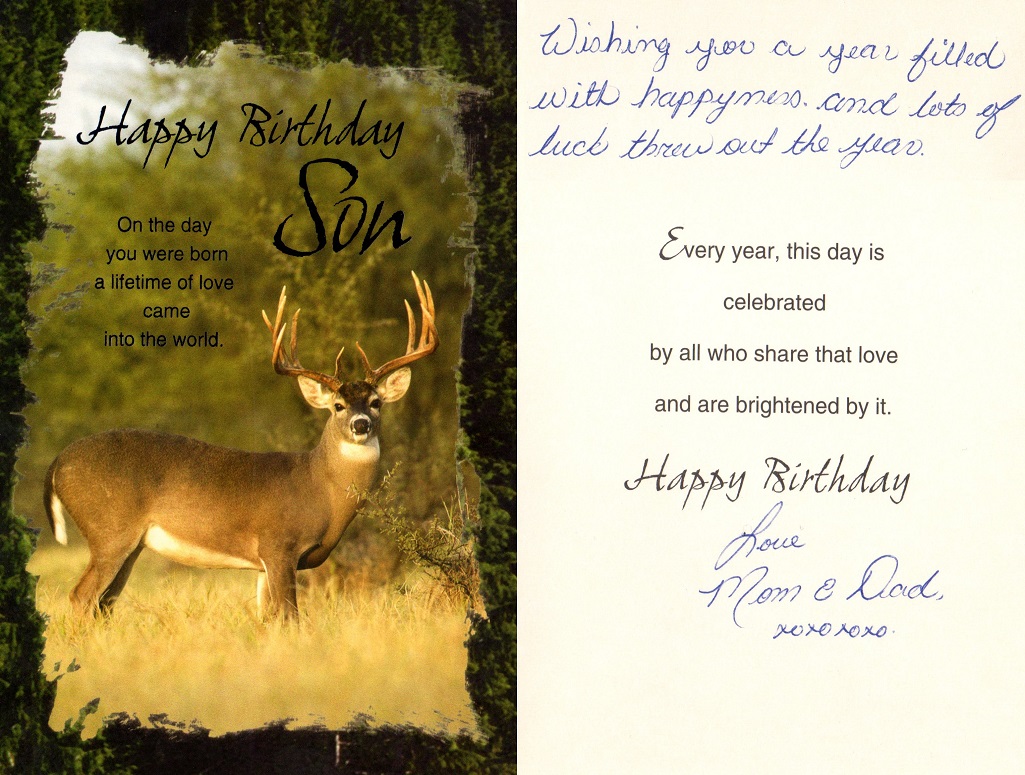 Happy Birthday
Son
On the day
you were born
a lifetime of love
came
into the world.
Wishing you a year filled
with happyness. and lots of
luck threw out the year.
Every year, this day is
celebrated
by all who share that love
and are brightened by it.
Happy Birthday
Love
Mom & Dad.
xoxoxoxo.